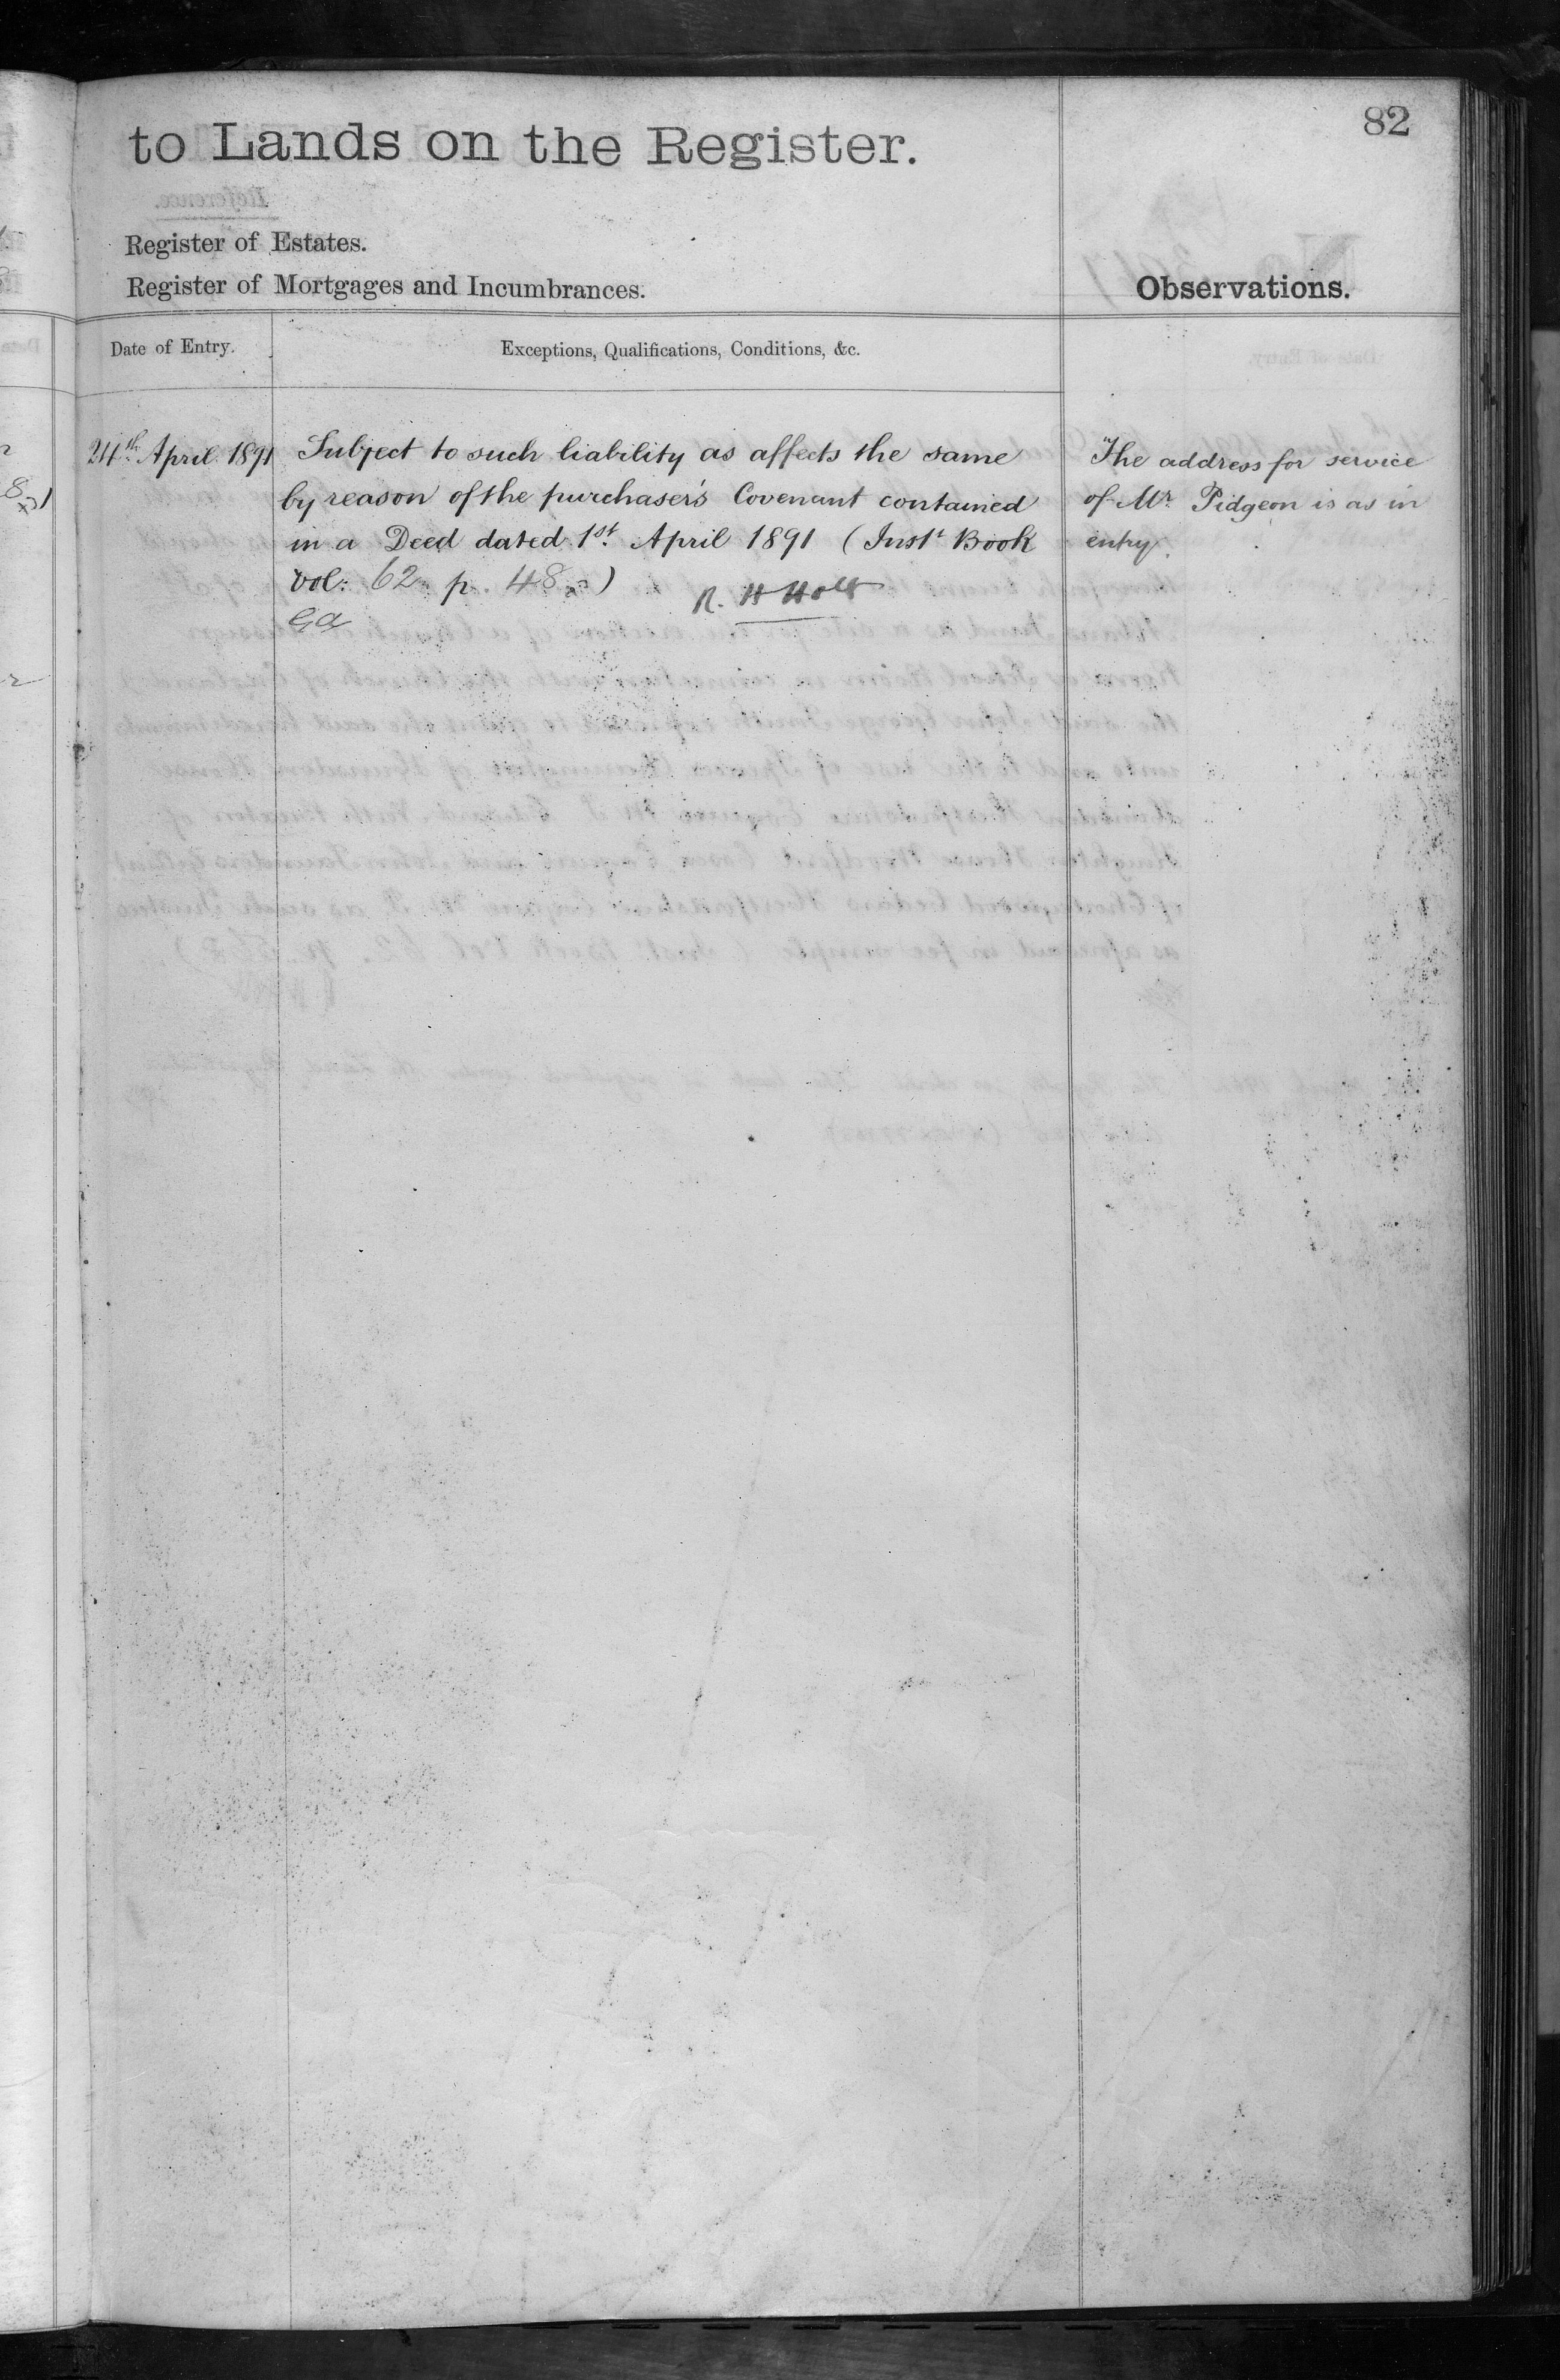 82
to Lands on the Register.
Register of Estates.
Register of Mortgages and Incumbrances.
Observations.
Date of Entry.
Exceptions, Qualifications, Conditions, &c.
24th April 1891
Subject to such liability as affects the same
by reason of the purchaser's Covenant contained
in a Deed dated 1st April 1891 (Inst Book
vol: 62 p. 48)
R. H Holt
The address for service
of Mr Pidgeon is as in
entry.